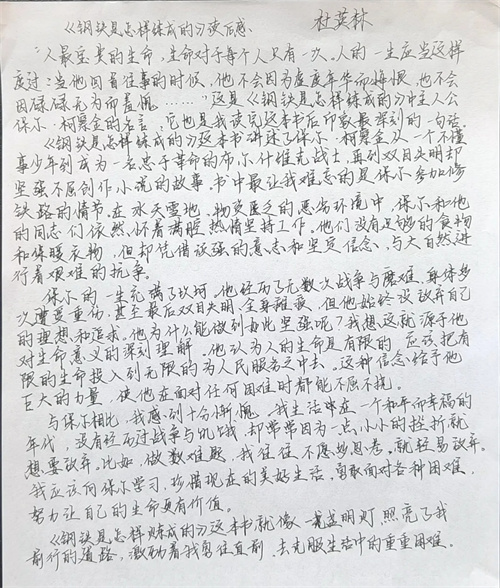 《钢铁是怎样练成的》读后感
杜英林
"人最宝贵的生命,生命对于每个人只有一次。人的一生应当这样
度过:当他回首往事的时候,他不会因为虚度年华而悔恨,也不会
因碌碌无为而羞愧……"这是《钢铁是怎样练成的》中主人公
保尔·柯察金的名言,它也是我读完这本书后印象最深刻的一句话
《钢铁是怎样练成的》这本书讲述了保尔·柯察金从一个不懂
事少年到成为一名忠于革命的布尔什维克战士,再到双目失明却
坚强不屈创作小说的故事 书中最让我难忘的是保尔参加修
铁路的情节。在冰天雪地、物资匮乏的恶劣环境中,保尔和他
的同志们依然怀着满腔热情坚持工作。他们没有足够的食物
和保暖衣物,但却凭借顽强的意志和坚定信念、与大自然进
行着艰难的抗争。
保尔的一生充满了坎坷。他经历了无数次战争与磨难,身体多
次遭受重伤,甚至最后双目失明、全身瘫痪,但他始终没放弃自己
的理想和追求。他为什么能做到如此坚强呢?我想这就源于他
对生命意义的深刻理解。他认为人的生命是有限的,应该把有
限的生命投入到无限的为人民服务之中去。这种信念给予他
巨大的力量,使他在面对任何困难时都能不屈不挠。
与保尔相比,我感到十分惭愧。我生活在一个和平而幸福的
年代,没有经历过战争与饥饿,却常常因为一点小小的挫折就
想要放弃。比如,做数难题,我往往不愿多思考,就轻易放弃。
我应该向保尔学习,珍惜现在的美好生活,勇敢面对各种困难,
努力让自己的生命具有价值。
《钢铁是怎样炼成的》这本书就像一盏明灯,照亮了我
前行的道路,激励着我勇往直前,去克服生活中的重重困难。